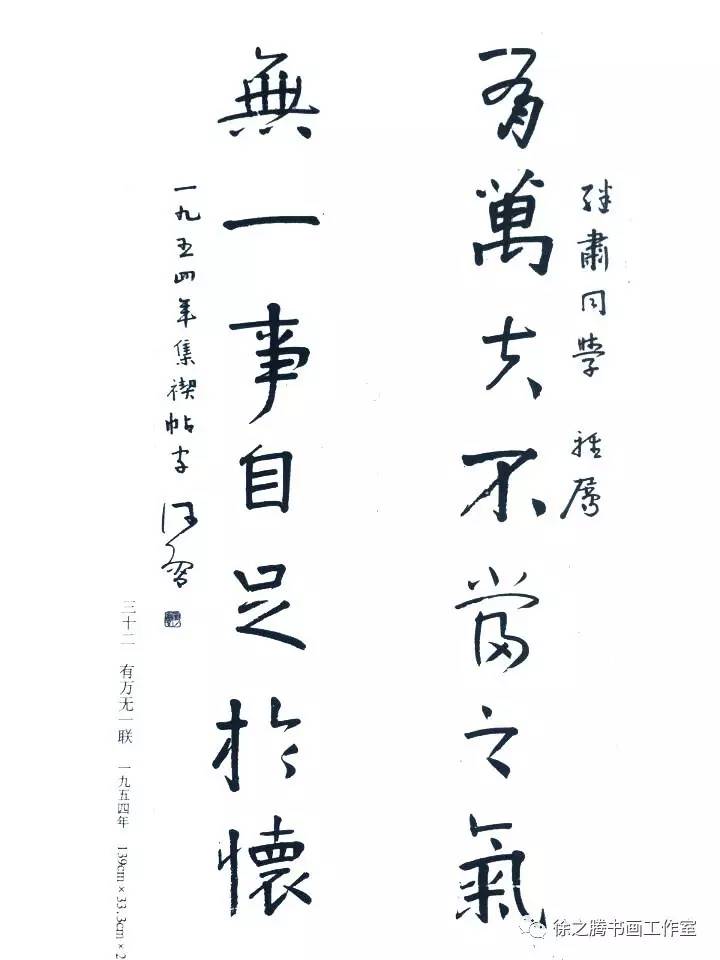 继肅同學 雅属
有萬夫不當之氣
無一事自足於懷
一九五四年集禊帖字
三十二 有万无一联 一九五四年 139cm×33.3cm×2
徐之腾书画工作室